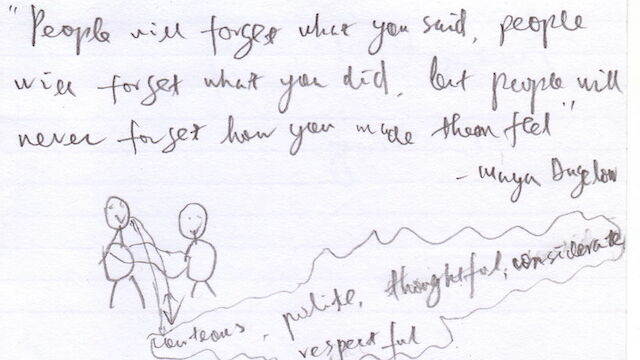 "People will forget what you said, people
will forget what you did, but people will
never forget how you made them feel"
- Maya Angelow
courteous, polite, thoughtful, considerate
respectful